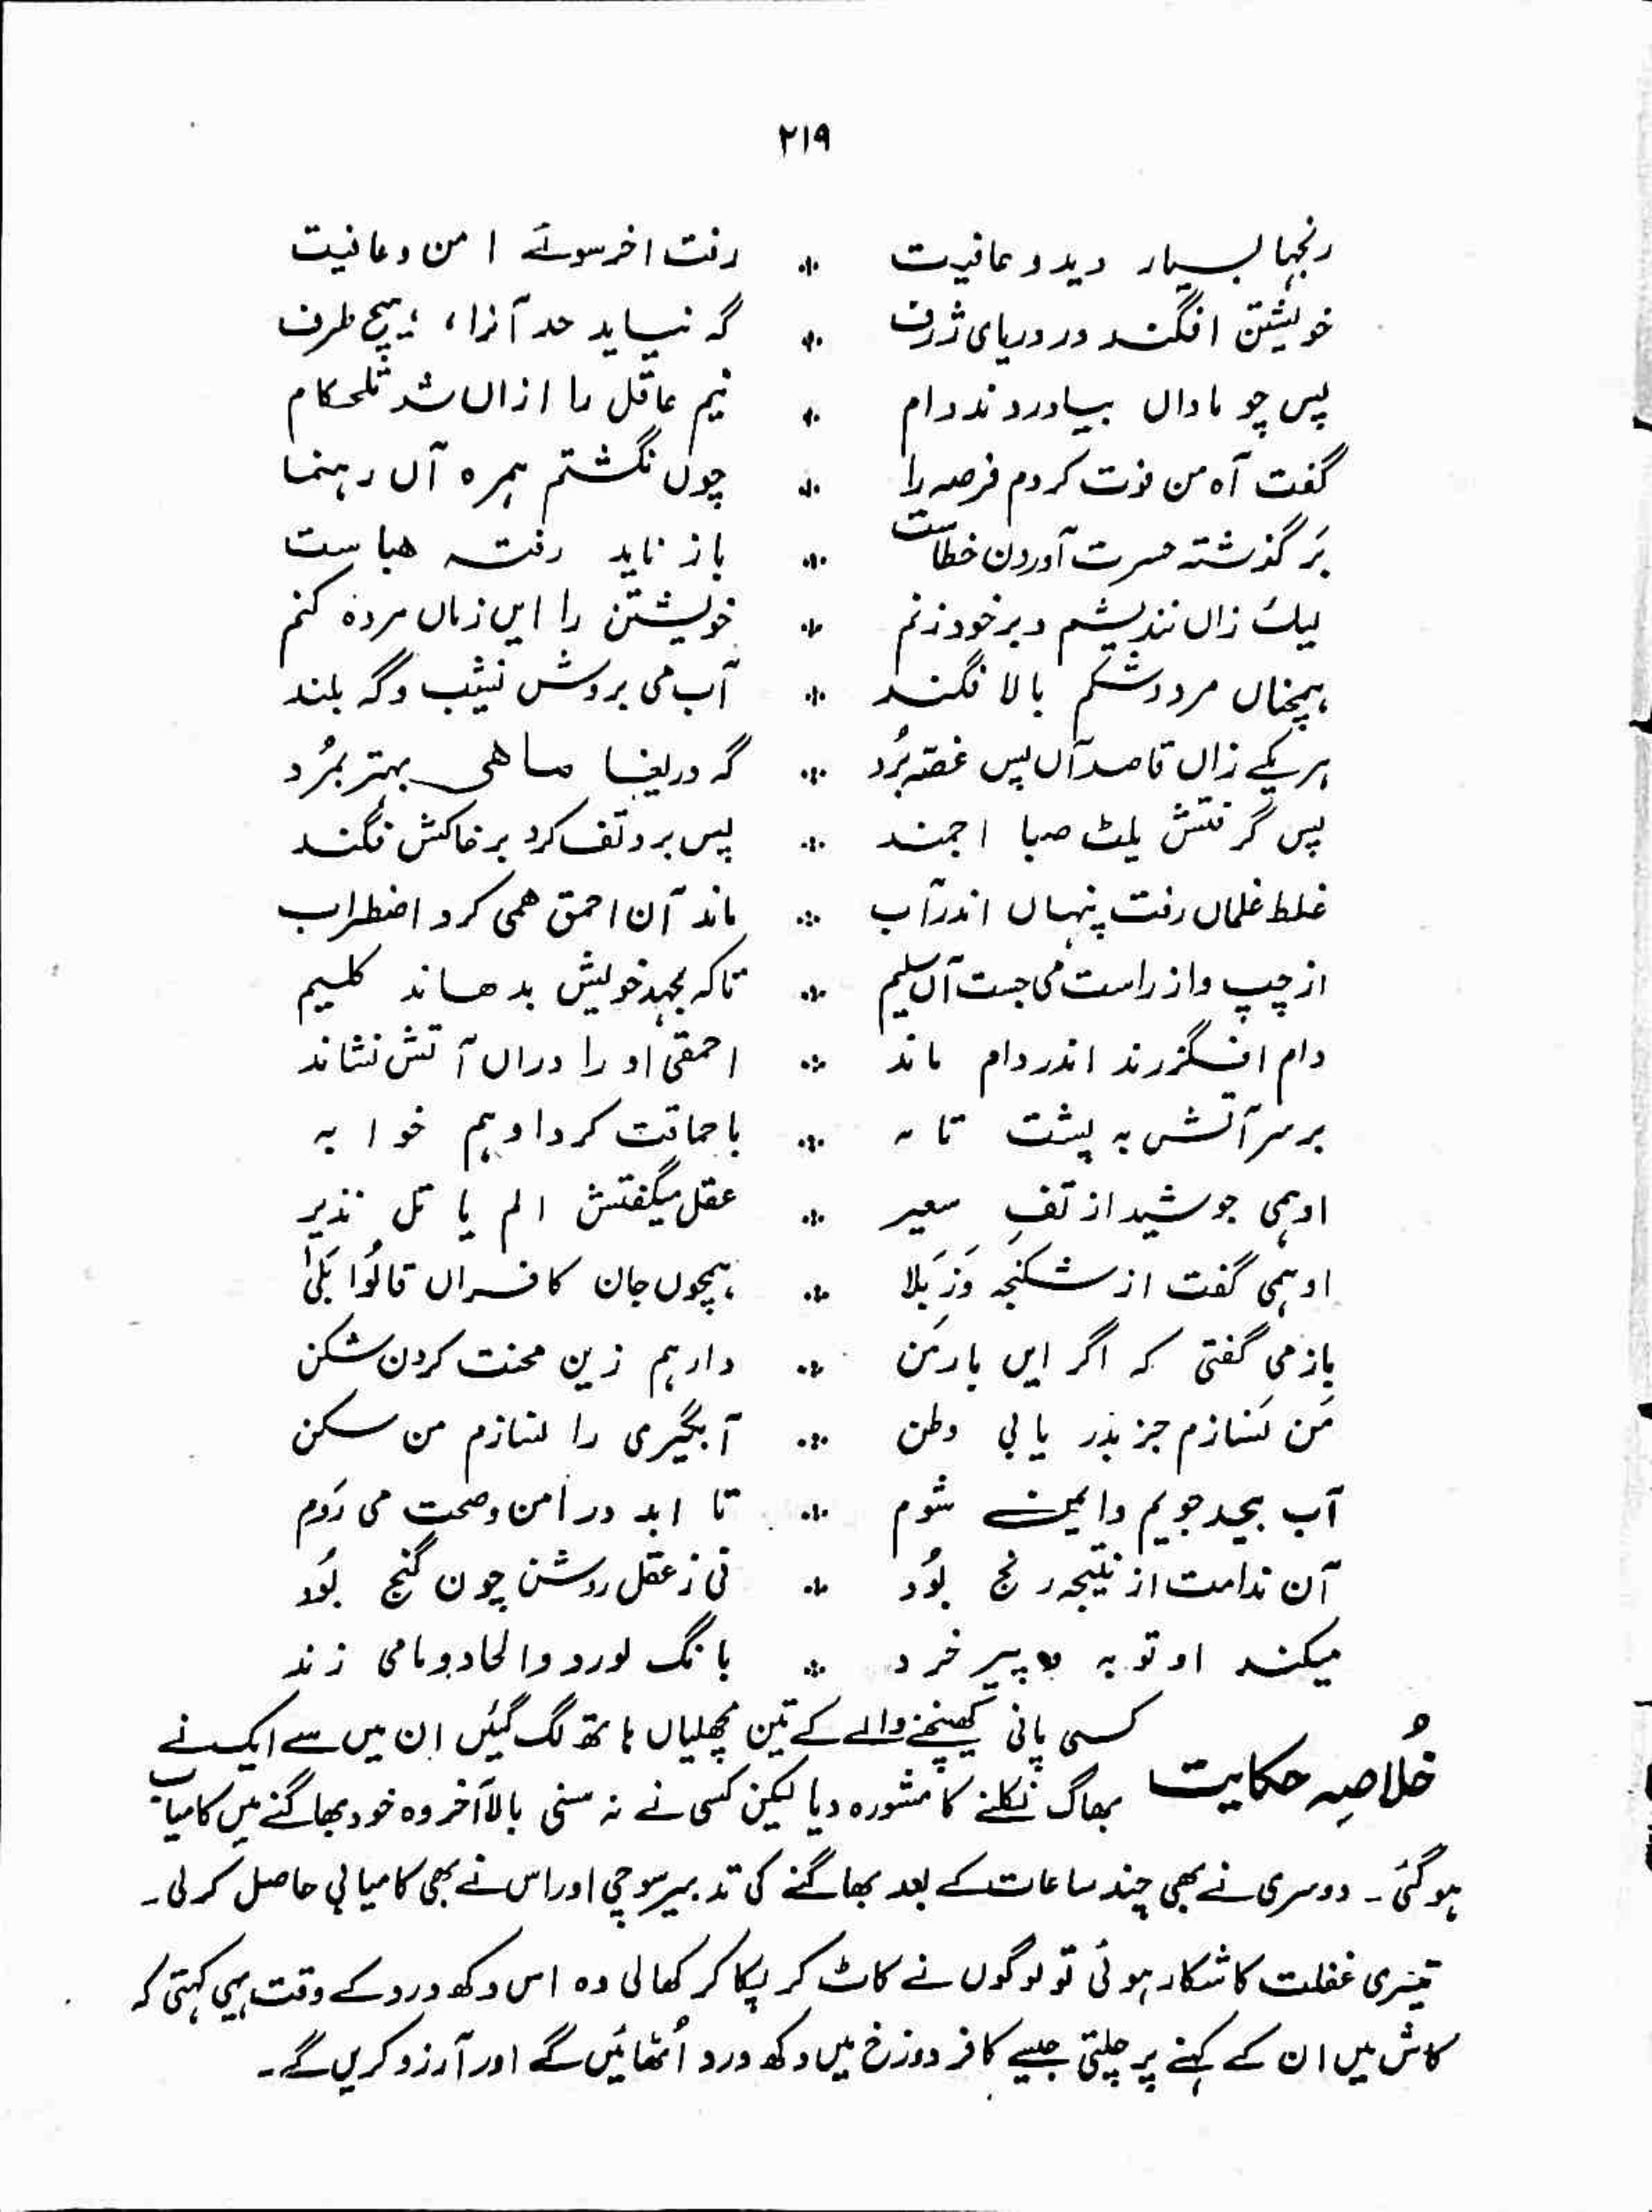 ۲۱۹
رنجہا بسیار دید و عافیت ∗ رفت اخر سوئے امن و عافیت
خویشتن افگند در دریای ژرف ∗ کہ نیابد حد آنرا، ہیچ طرف
پس چو ماداں بیاوردند دام ∗ نیم عاقل را ازاں شد تلحکام
گفت آہ من فوت کردم فرصہ را ∗ چوں نگشتم ہمرہ آں رہنما
بَر گذشتہ حسرت آوردن خطاست ∗ باز ناید رفتہ ھباست
لیک زاں نندیشم و بر خود زنم ∗ خویشتن را ایں زماں مردہ کنم
ہمچناں مرد و شکم بالا فگند ∗ آب می بردش نشیب و گہ بلند
ہر یکے زاں قاصد آں پس غصّہ بُرد ∗ کہ دریغا ماھی بہتر بمُرد
پس گرفتش یک صیا احمند ∗ پس برو تف کرد بر خاکش فگند
غلط غلماں رفت پنہاں اندر آب ∗ ماند آن احمق ھمی کرد اضطراب
از چپ و از راست می جست آں سلیم ∗ تاکہ بجہد خویش بدھاند کلیم
دام افگزرند اندر دام ماند ∗ احمقی او را دراں آتش نشاند
بر سر آتش بہ پشت تا ہ ∗ با حماقت کرد او ہم خوا بہ
او ہمی جوشید از تفِ سعیر ∗ عقل میگفتش الم یا تک نذیر
او ہمی گفت از شکنجہ وَز بَلا ∗ ہمچوں جان کافراں قالُوا بَلیٰ
باز می گفتی کہ اگر ایں بار مَن ∗ وارہم زین محنت کردن شکن
مَن نسازم جز بدر یابی وطن ∗ آبگیری را نسازم من سکن
آب بیحد جویم و ایمن شوم ∗ تا ابد در امن و صحت می رَوم
آن ندامت از نتیجہ رنج بُوَد ∗ نی ز عقل روشن چون گنج بُوَد
میکند او توبہ و پیر خرد ∗ بانگ لورد والحادو مامی زند
خُلاصہ حکایت
کسی پانی کھینچنے والے کے تین مچھلیاں ہاتھ لگ گئیں ان میں سے ایک نے
بھاگ نکلنے کا مشورہ دیا لیکن کسی نے نہ سنی بالآخر وہ خود بھاگنے میں کامیاب
ہوگئی۔ دوسری نے بھی چند ساعات کے بعد بھاگنے کی تدبیر سوچی اور اس نے بھی کامیابی حاصل کر لی۔
تیسری غفلت کا شکار ہوئی تو لوگوں نے کاٹ کر پکا کر کھالی وہ اس دکھ درد کے وقت یہی کہتی کہ
کاش میں ان کے کہنے پر چلتی جیسے کافر دوزخ میں دکھ درد اُٹھائیں گے اور آرزو کریں گے۔